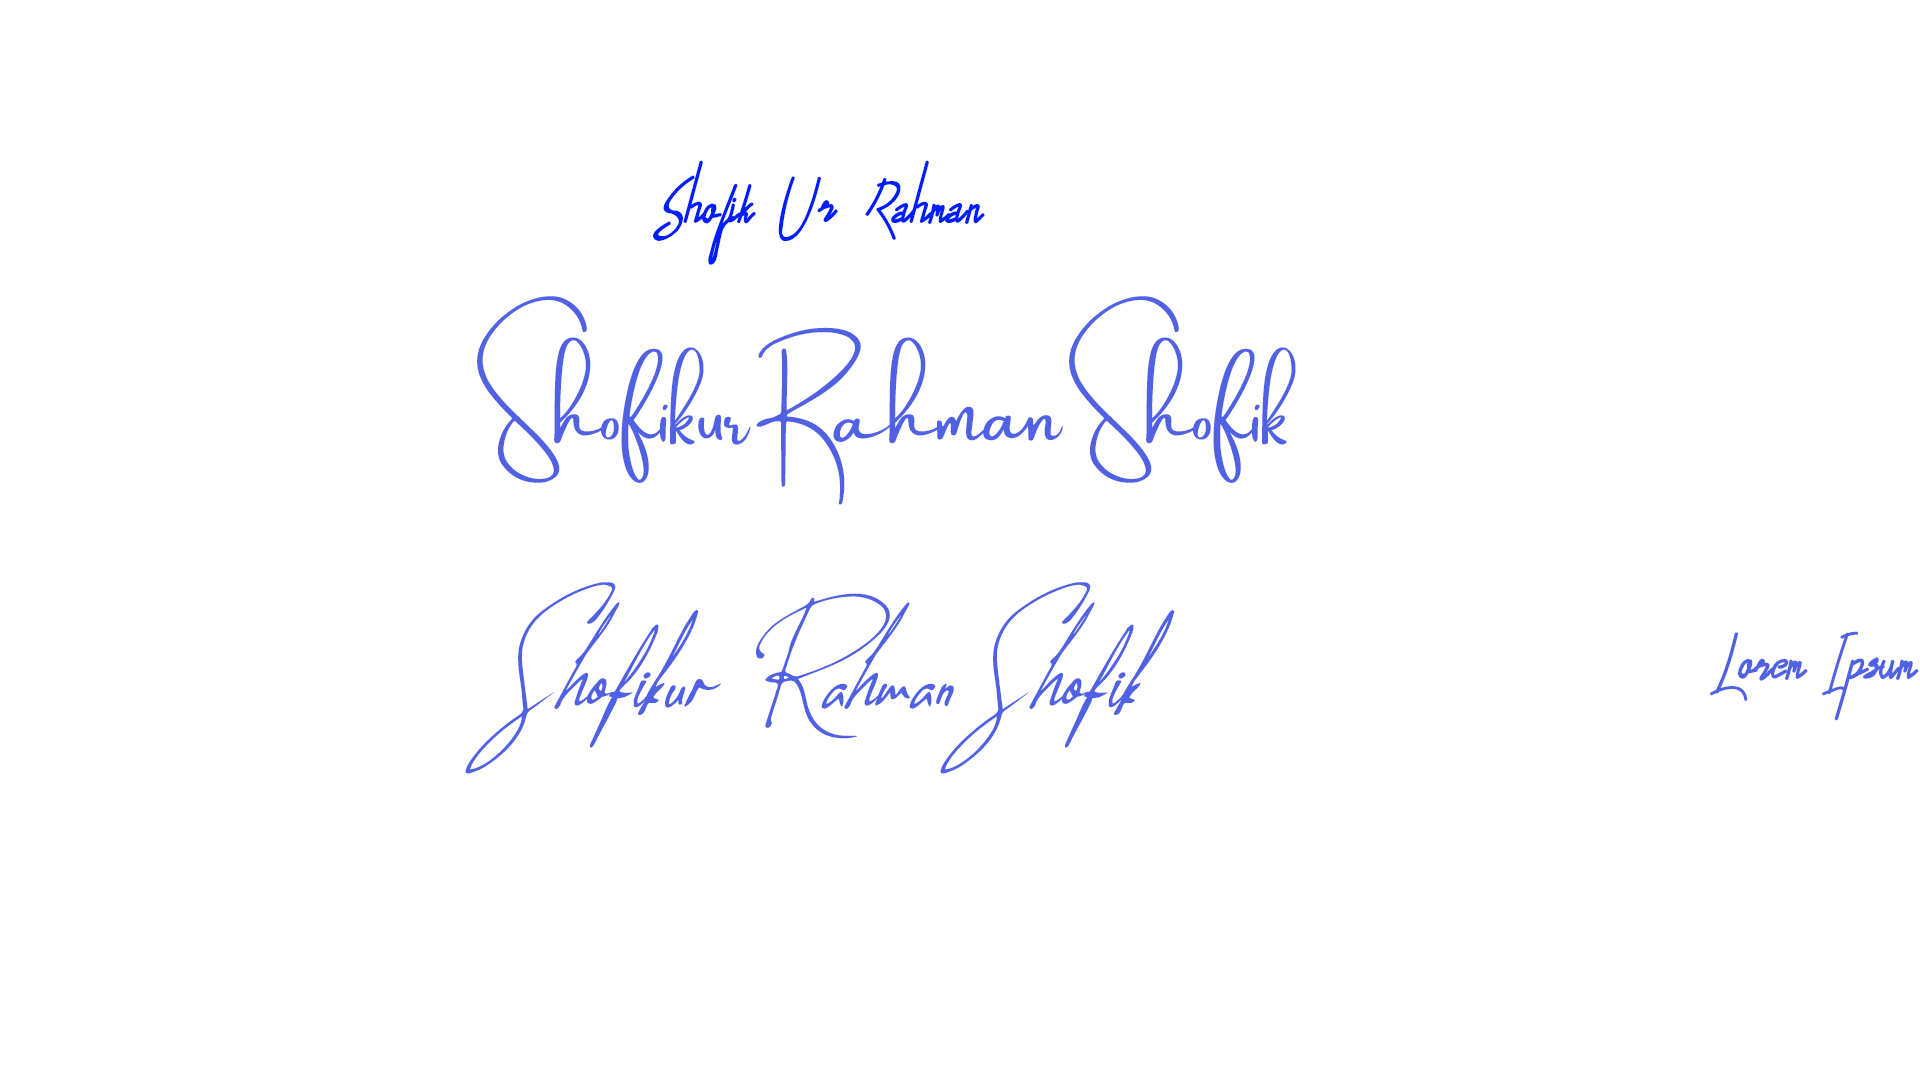 Shofik Ur Rahman
Shofikur Rahman Shofik
Shofikur Rahman Shofik
Lorem Ipsum